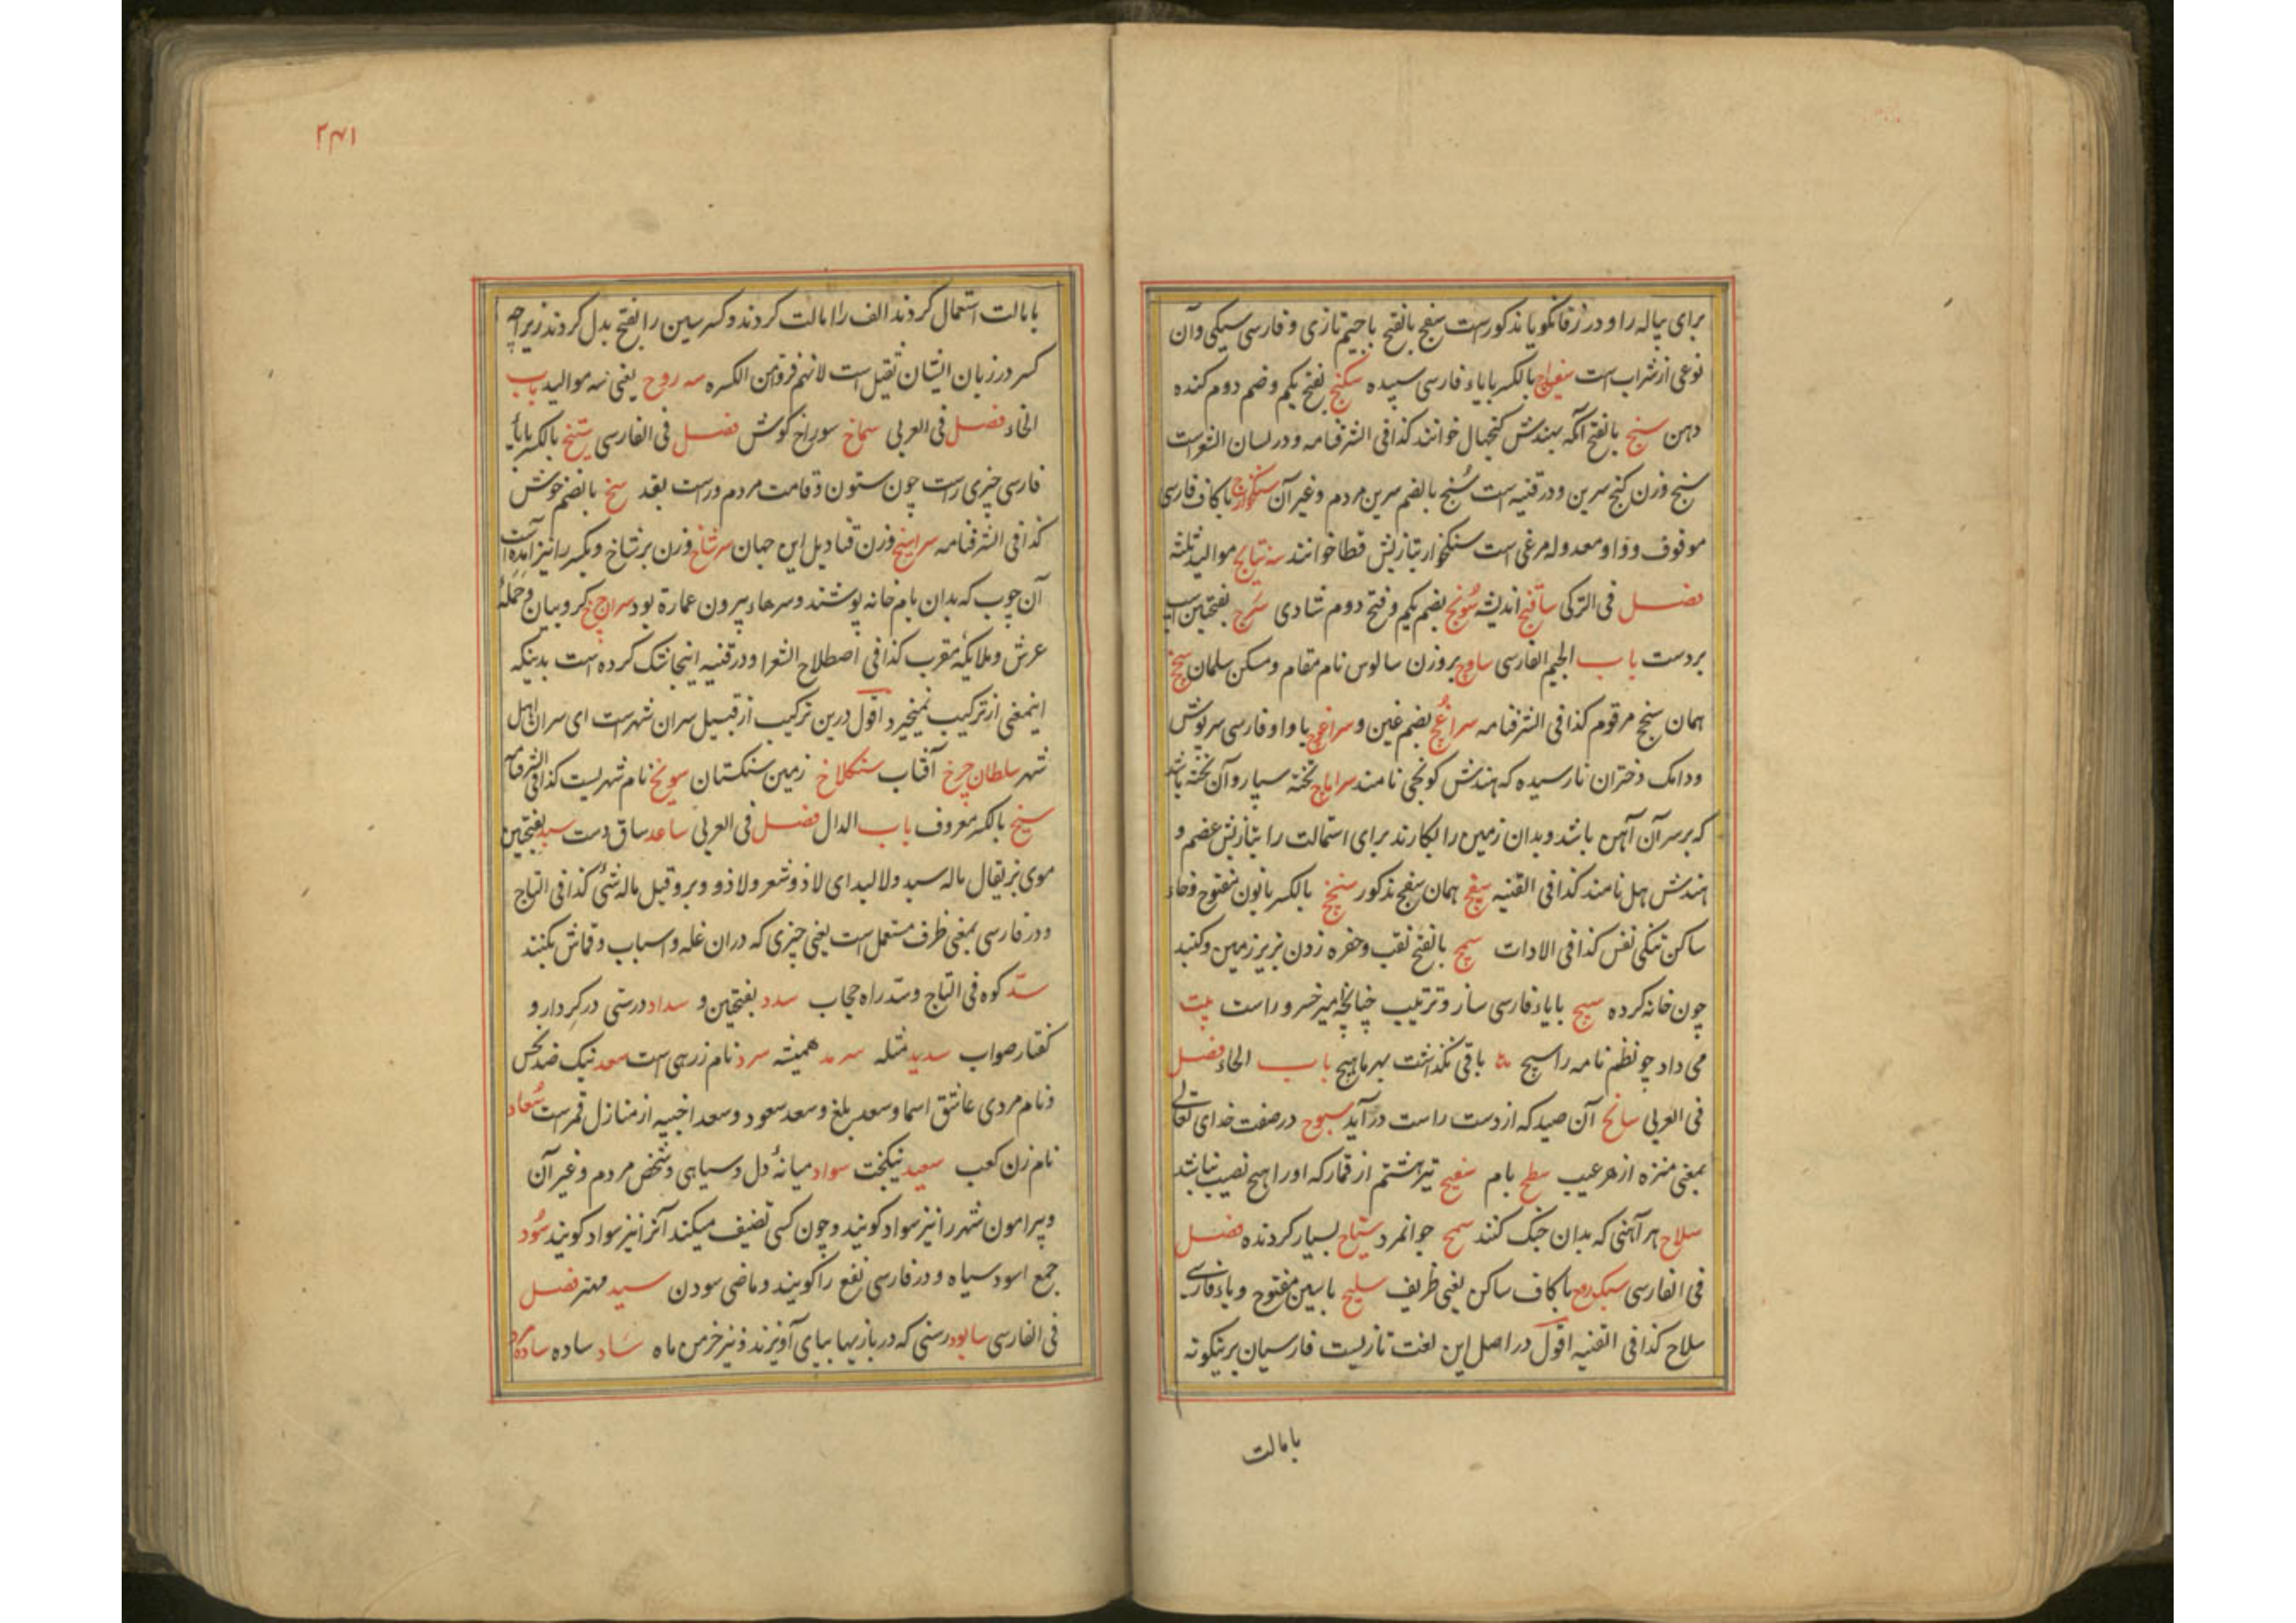 برای پیاله را و در زفانگویا مذکورست سفج بالفتح باجیم تازی و فارسی سیکی و آن
نوعی از شراب است سفیداج بالکسر با یاء فارسی سپیده سکنج بفتح یکم و ضم دوم کنده
دهن سنج بالفتح آنکه بهندش کنجهال خوانند کذا فی الشرفنامه و در لسان الشعراست
سنج وزن کنج سرین و در قنیه است سُنج بالضم سرین مردم و غیر آن سنکخوارج با کاف فارسی
موقوف و واو معدوله مرغی است سنکخوار بتازیش قطا خوانند سه نتایج موالید ثلثه
فصل فی الترکی ساقنج اندیشه سُونج بضم یکم و فتح دوم شادی سَرج بفتحتین
بردست باب الجیم الفارسی ساوچ بر وزن سالوس نام مقام و مسکن سلمان سنج
همان سنج مرقوم کذا فی الشرفنامه سراغُچ بضم غین و سراغوچ با واو فارسی سرپوش
ودامک دختران نارسیده که هندش کونچی نامند سراماج تخته سپار و آن تخته باشد
که بر سر آن آهن باشد و بدان زمین را بکارند برای استمالت را بتازیش عضم و
هندش هل نامند کذا فی القنیه سیفج همان سفج مذکور سنخج بالکسر با نون مفتوح و خاء
ساکن تنکی نفس کذا فی الادات سمج بالفتح نقب و حفره زدن بزیر زمین و کنبد
چون خانه کرده سیج با یاء فارسی ساز و ترتیب چنانچه امیر خسرو راست بیت
می داد چو نظم نامه را سیج باقی نگذاشت بهر ما هیچ باب الحاء فصل
فی العربی سانح آن صید که از دست راست در آید سبوح در صفت خدای تعالی
بمعنی منزه از هر عیب سطح بام سفیح تیر هشتم از قمار که او را هیچ نصیب نباشد
سلاح هر آهنی که بدان جنک کنند سمح جوانمرد سیّاح بسیار کردنده فصل
فی الفارسی سبکروح با کاف ساکن یعنی ظریف سلیح با سین مفتوح و یاء فارسی
سلاح کذا فی القنیه اقول در اصل این لغت تازیست فارسیان برینکونه
بامالت
۲۴۱
بامالت استعمال کردند الف را امالت کردند و کسر سین را بفتح بدل کردند زیراچه
کسر در زبان ایشان ثقیل است لانهم فروا من الکسره سه روح یعنی سه موالید باب
الخاء فصل فی العربی سماخ سوراخ کوش فصل فی الفارسی ستیخ بالکسر با یاء
فارسی چیزی راست چون ستون و قامت مردم و راست بقد سخ بالضم خوش
کذا فی الشرفنامه سراسیخ وزن قنادیل این جهان سرشاخ وزن برشاخ و بکسر را نیز آمده است
آن چوب که بدان بام خانه پوشند و سرهاء بیرون عمارة بود سراج چرخ کروبیان و حملهٔ
عرش و ملایکهٔ مقرب کذا فی اصطلاح الشعرا و در قنیه اینجا شک کرده است بدینکه
اینمعنی از ترکیب نمیخیزد اقول درین ترکیب از قبیل سران شهرست ای سران اهل
شهر سلطان چرخ آفتاب سنکلاخ زمین سنکستان سونخ نام شهریست کذا فی الشرفنامه
سیخ بالکسر معروف باب الدال فصل فی العربی ساعد ساق دست سبد بفتحتین
موی بز یقال ماله سبد و لا لبد ای لا ذو شعر و لا ذو وبر و قیل ماله شیٔ کذا فی التاج
و در فارسی بمعنی ظرف مستعمل است یعنی چیزی که در آن غله و اسباب و قماش بکنند
سدّ کوه فی التاج و سد راه حجاب سدد بفتحتین و سداد درستی در کردار و
کفتار صواب سدید مثله سرمد همیشه سرد نام زرهی است سعد نیک ضد نحس
و نام مردی عاشق اسما و سعد بلغ و سعد سعود و سعد اخبیه از منازل قمرست سُعاد
نام زن کعب سعید نیکبخت سواد میانهٔ دل و سیاهی و شخص مردم و غیر آن
و پیرامون شهر را نیز سواد کویند و چون کسی تصنیف میکند آنرا نیز سواد کویند سُود
جمع اسود سیاه و در فارسی نفع را کویند و ماضی سودن سید مهتر فصل
فی الفارسی سابود رسنی که در بازیها بپای آویزند و نیز خرمن ماه سَاد ساده ساده مرد